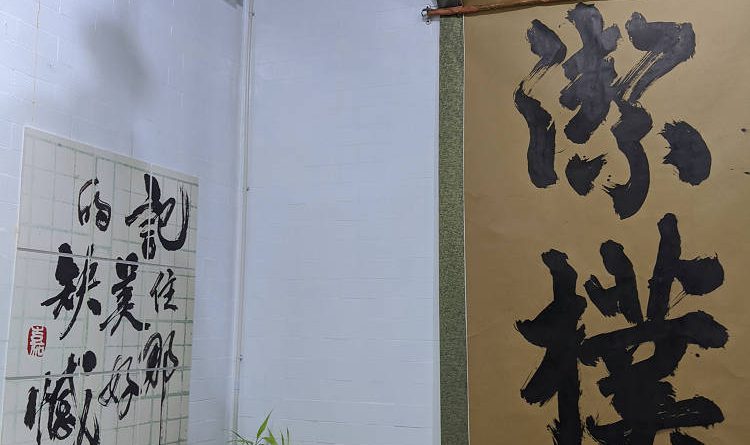 記住那
美好
的缺憾
潔樸